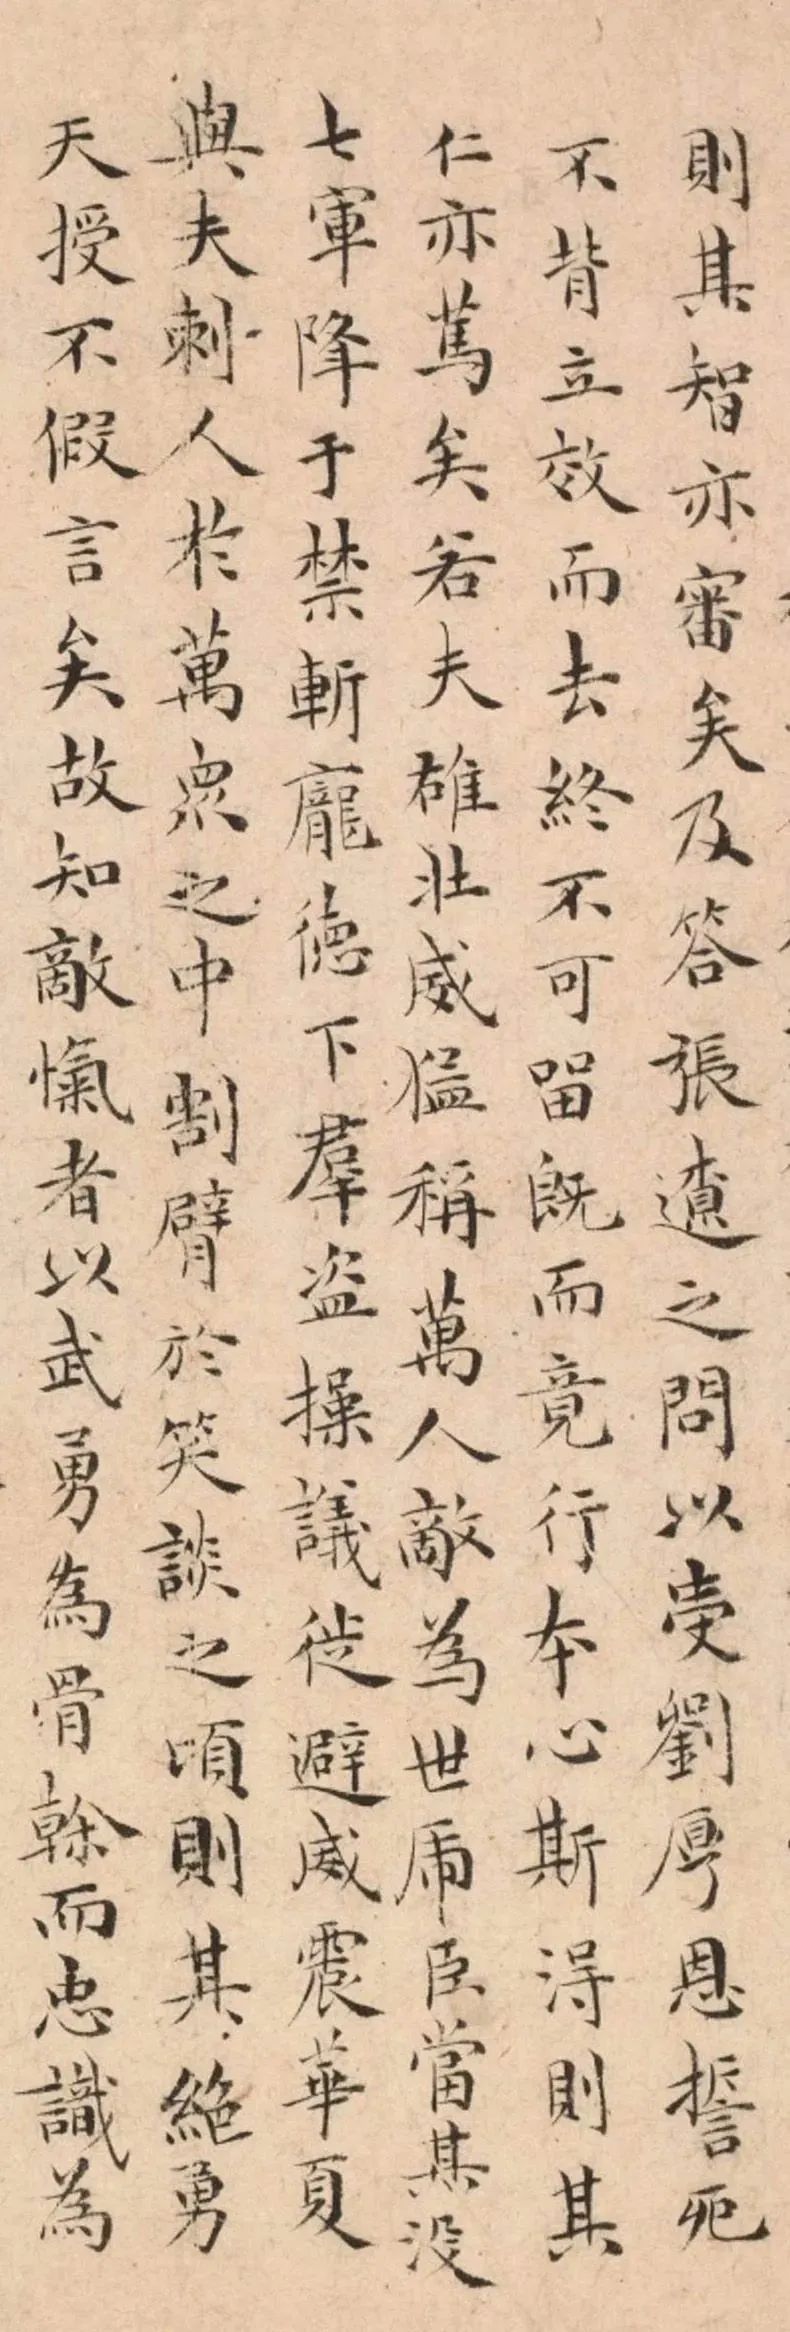 則其智亦審矣及答張遼之問以受劉厚恩誓死
不背立效而去終不可留既而竟行本心斯得則其
仁亦篤矣若夫雄壯威猛稱萬人敵為世虎臣當其沒
七軍降于禁斬龐德下羣盜操議徙避威震華夏
與夫刺人於萬眾之中割臂於笑談之頃則其絕勇
天授不假言矣故知敵愾者以武勇為骨榦而忠識為